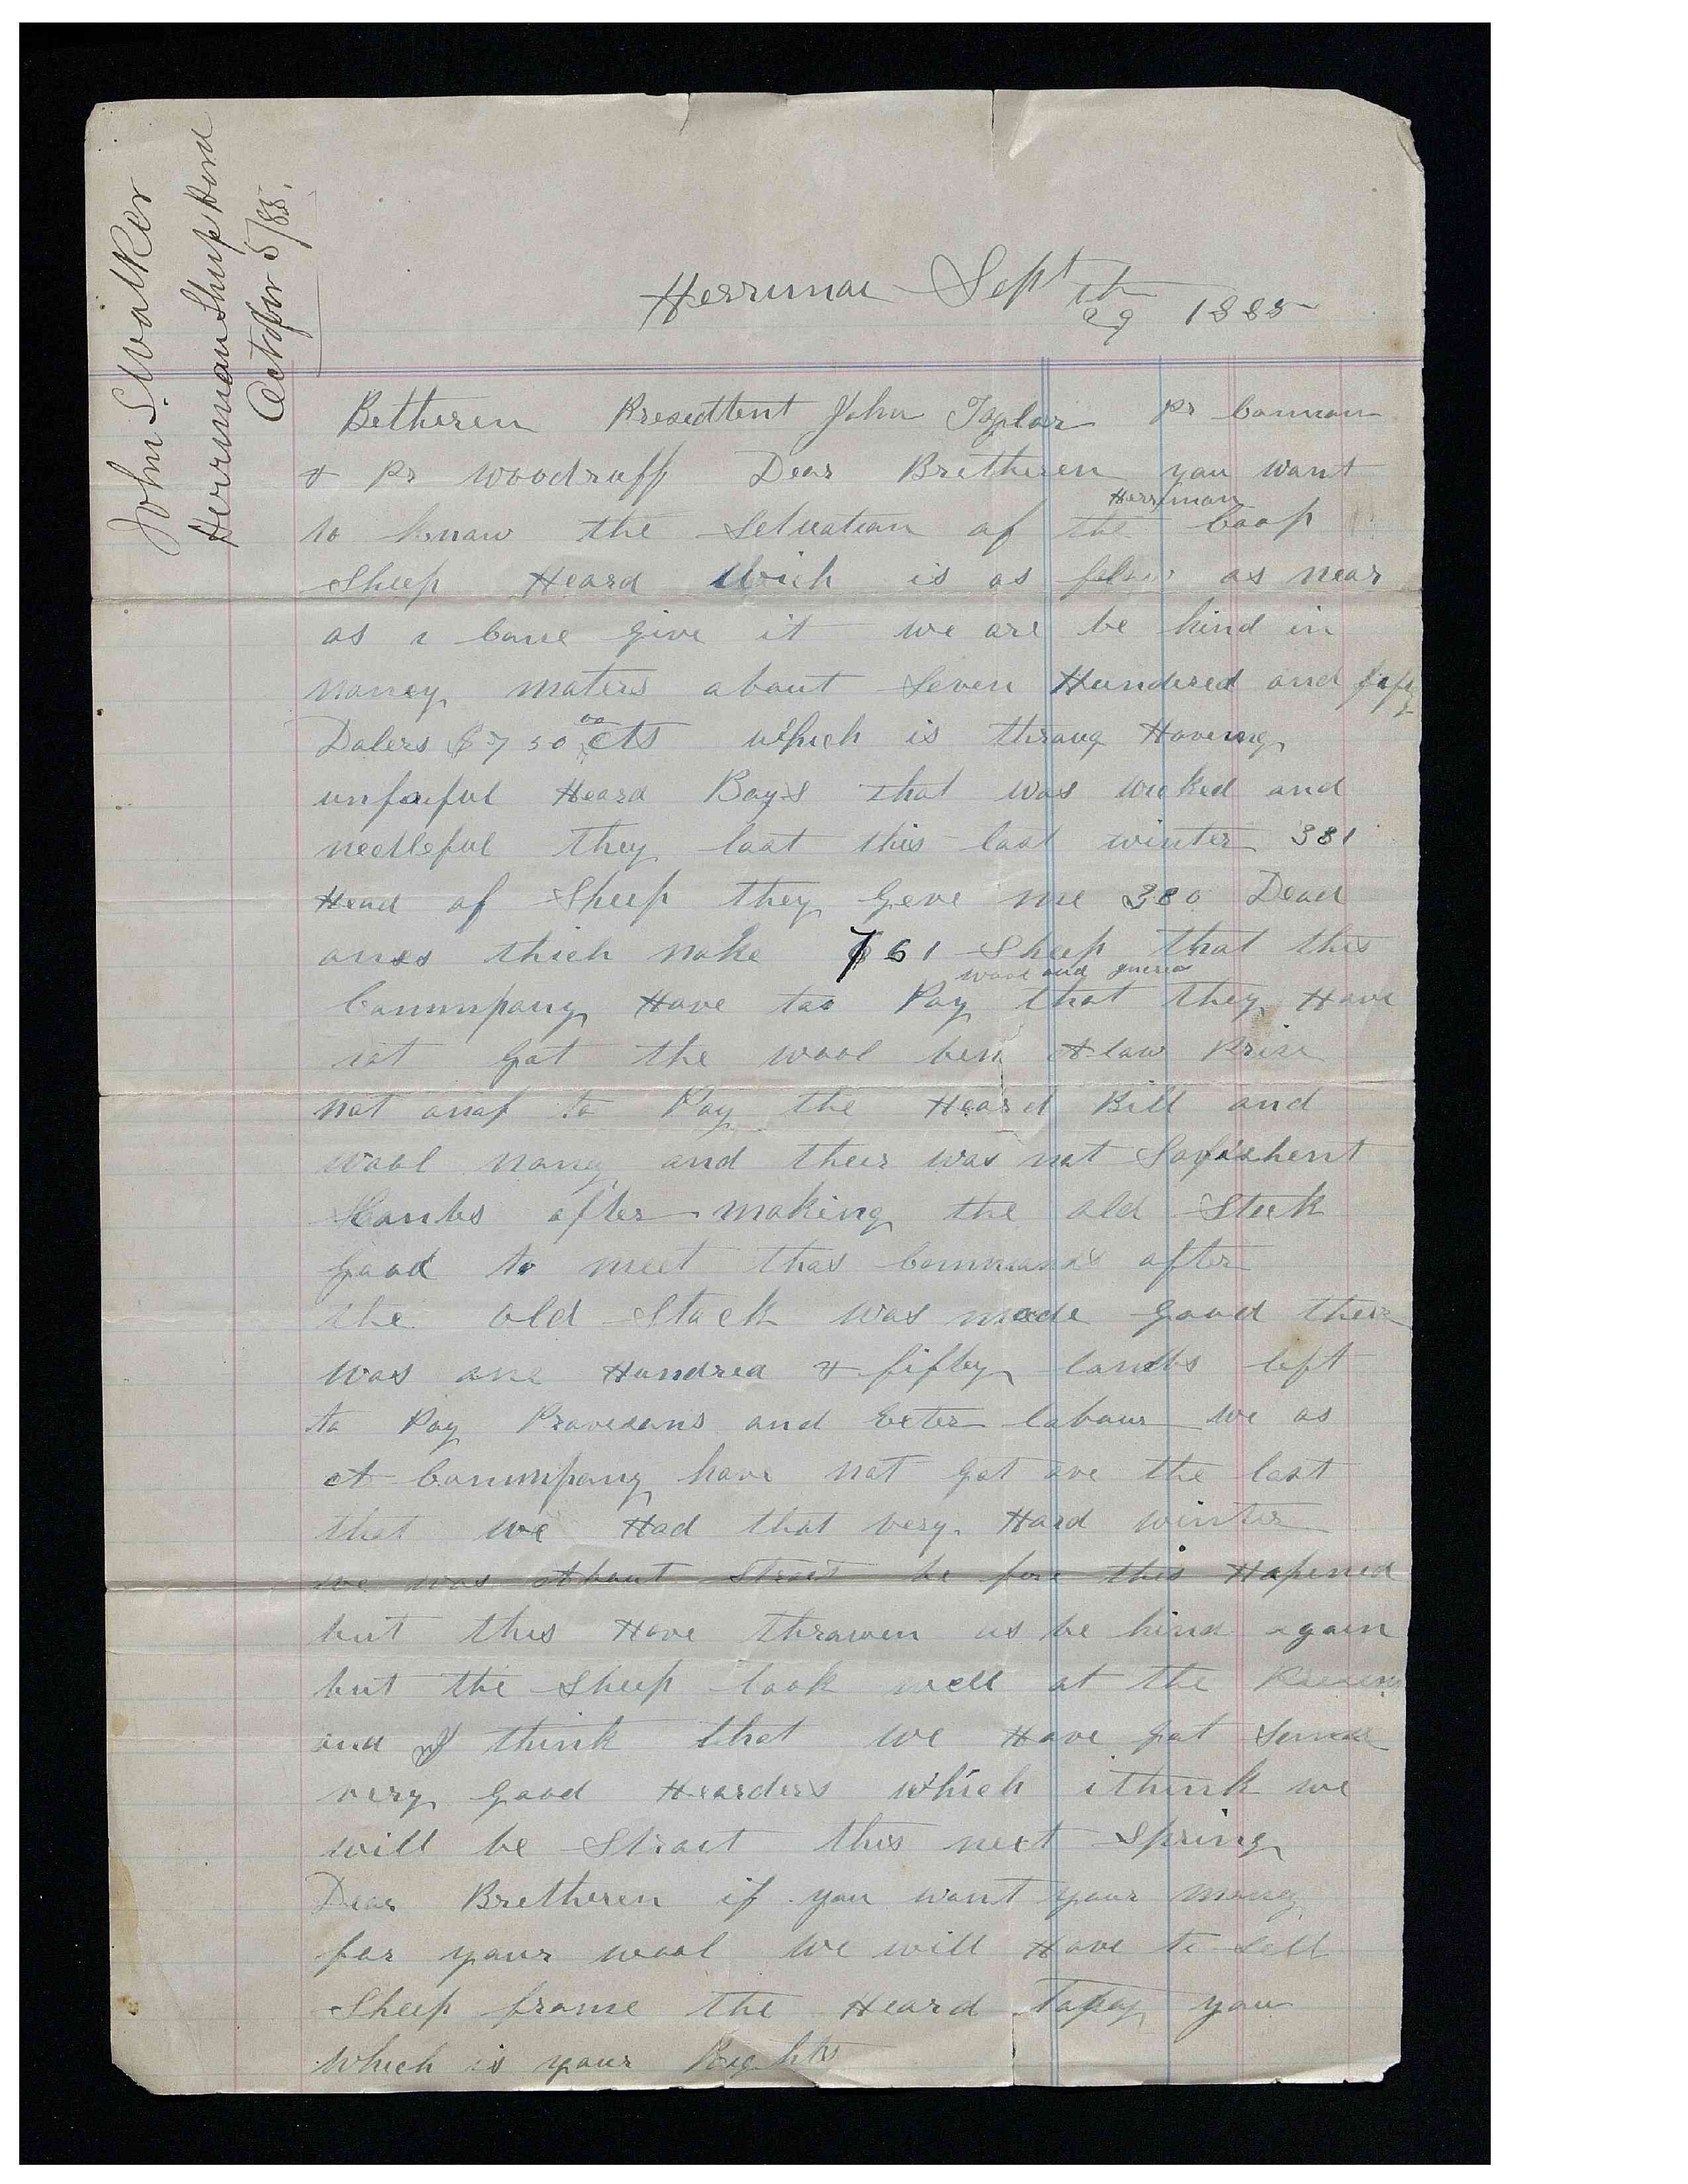 John S. Walker
Herriman Sheep Herd
October 5/85.
Herriman Sept 29th 1885
Betheren Presedtent John Taylor Pr Cannan
& Pr Woodruff Dear Bretheren you want
to know the Setuation of the Herriman Coop
Sheep Heard Which is as folow as near
as i Cane give it we are be hind in
Money maters about Seven Hundred and fifty
Dolers $750 00 cts which is throug Haveing
unfaiful Heard Boys that was wicked and
necleful they last this last winter 381
Head of Sheep they Geve me 380 Dead
ones thich make 761 Sheep that this
Cammpany Have too Pay wool and increa that they Have
not got the wool ben A law Prise
not anaf to Pay the Heard Bill and
wool money and their was not Sofishent
Lambs after making the old Stock
good to meet thas Commans after
the old Stack was made good their
was one Hundred & fiftey lambs left
to Pay Provesans and Exter labour we as
A Cammpany have not got ove the last
that we Had that very Hard winter
we was About Strait be fore this Hapened
but this Have thrawen us be hind again
but the Sheep look well at the Presen
and I think that we Have got Some
very good Hearders which i think we
will be Strait this next Spring
Dear Bretheren if you want your money
for your wool we will Have to Sell
Sheep frome the Heard to pay you
which is your Rights